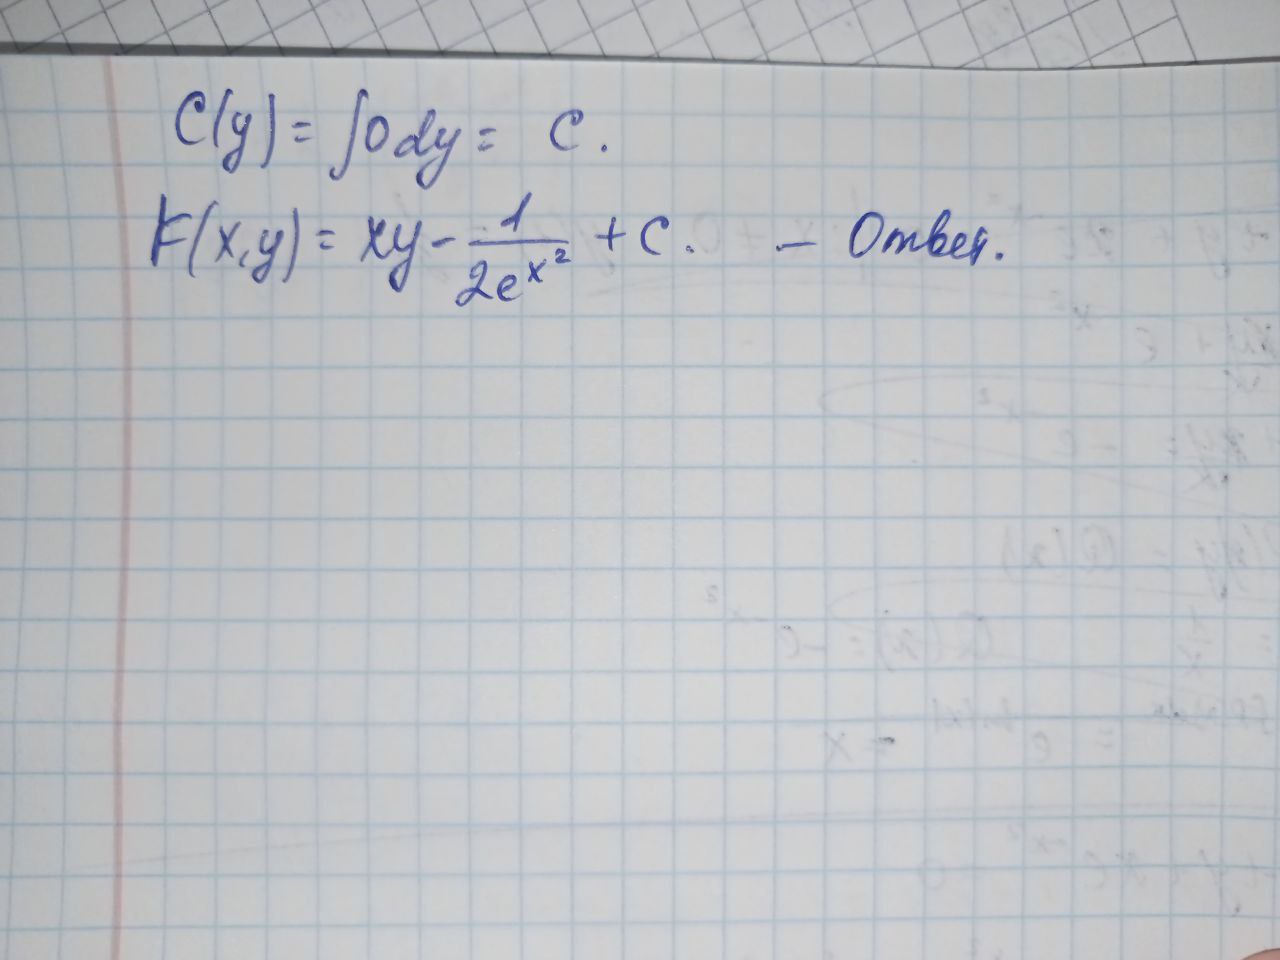 C(y) = ∫0dy = C.
F(x,y) = xy - 1/(2e^(x^2)) + C. - Ответ.